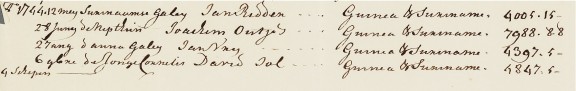 A⁰ 1744. 12 mey Surinaamse Galey Jan Ridden ... Guinea & Suriname. 4005.15-
28 Juny de Neptuin Joachim Outjes ... Guinea & Suriname. 7988.88
27 aug d'anna Galey Jan Vrey ... Guinea & Suriname. 4397.5-
6 9bre de Jonge Cornelis David Tol ... Guinea & Suriname. 4847.5-
4 Schepen